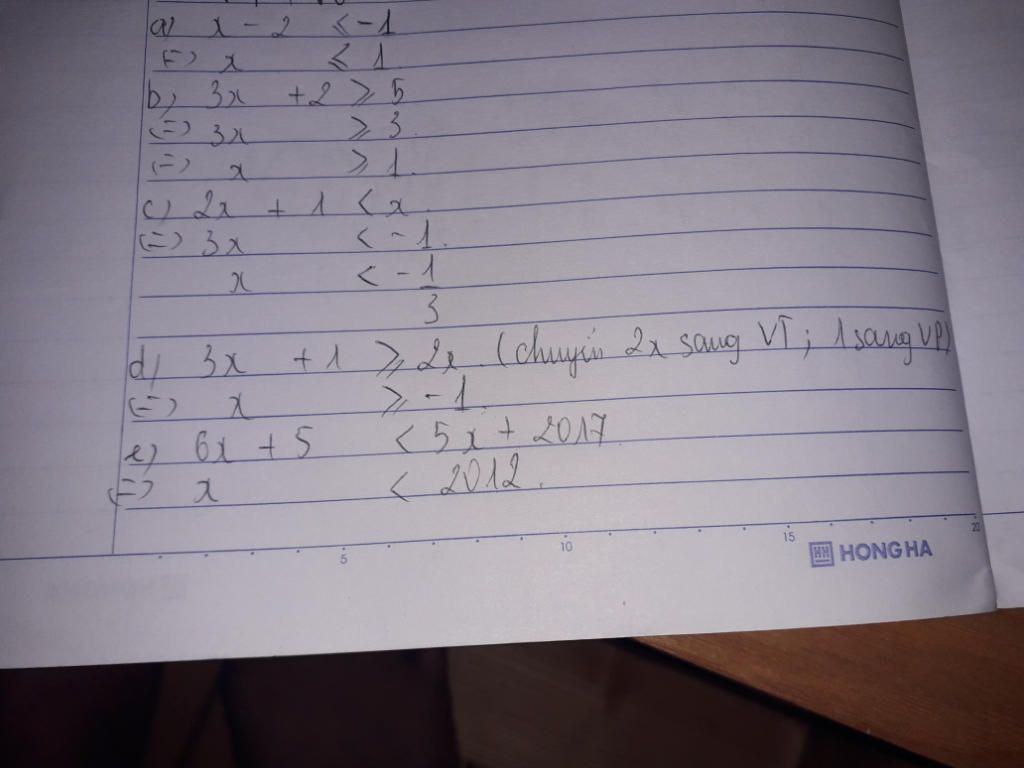 a) x - 2 < -1
(=) x < 1
b) 3x + 2 ⩾ 5
(=) 3x ⩾ 3
(=) x ⩾ 1
c) 2x + 1 < x
(=) 3x < -1.
x < -1/3
d) 3x + 1 ⩾ 2x (chuyển 2x sang VT; 1 sang VP)
(=) x ⩾ -1
e) 6x + 5 < 5x + 2017
(=) x < 2012.
5 10 15 20
HH HONG HA